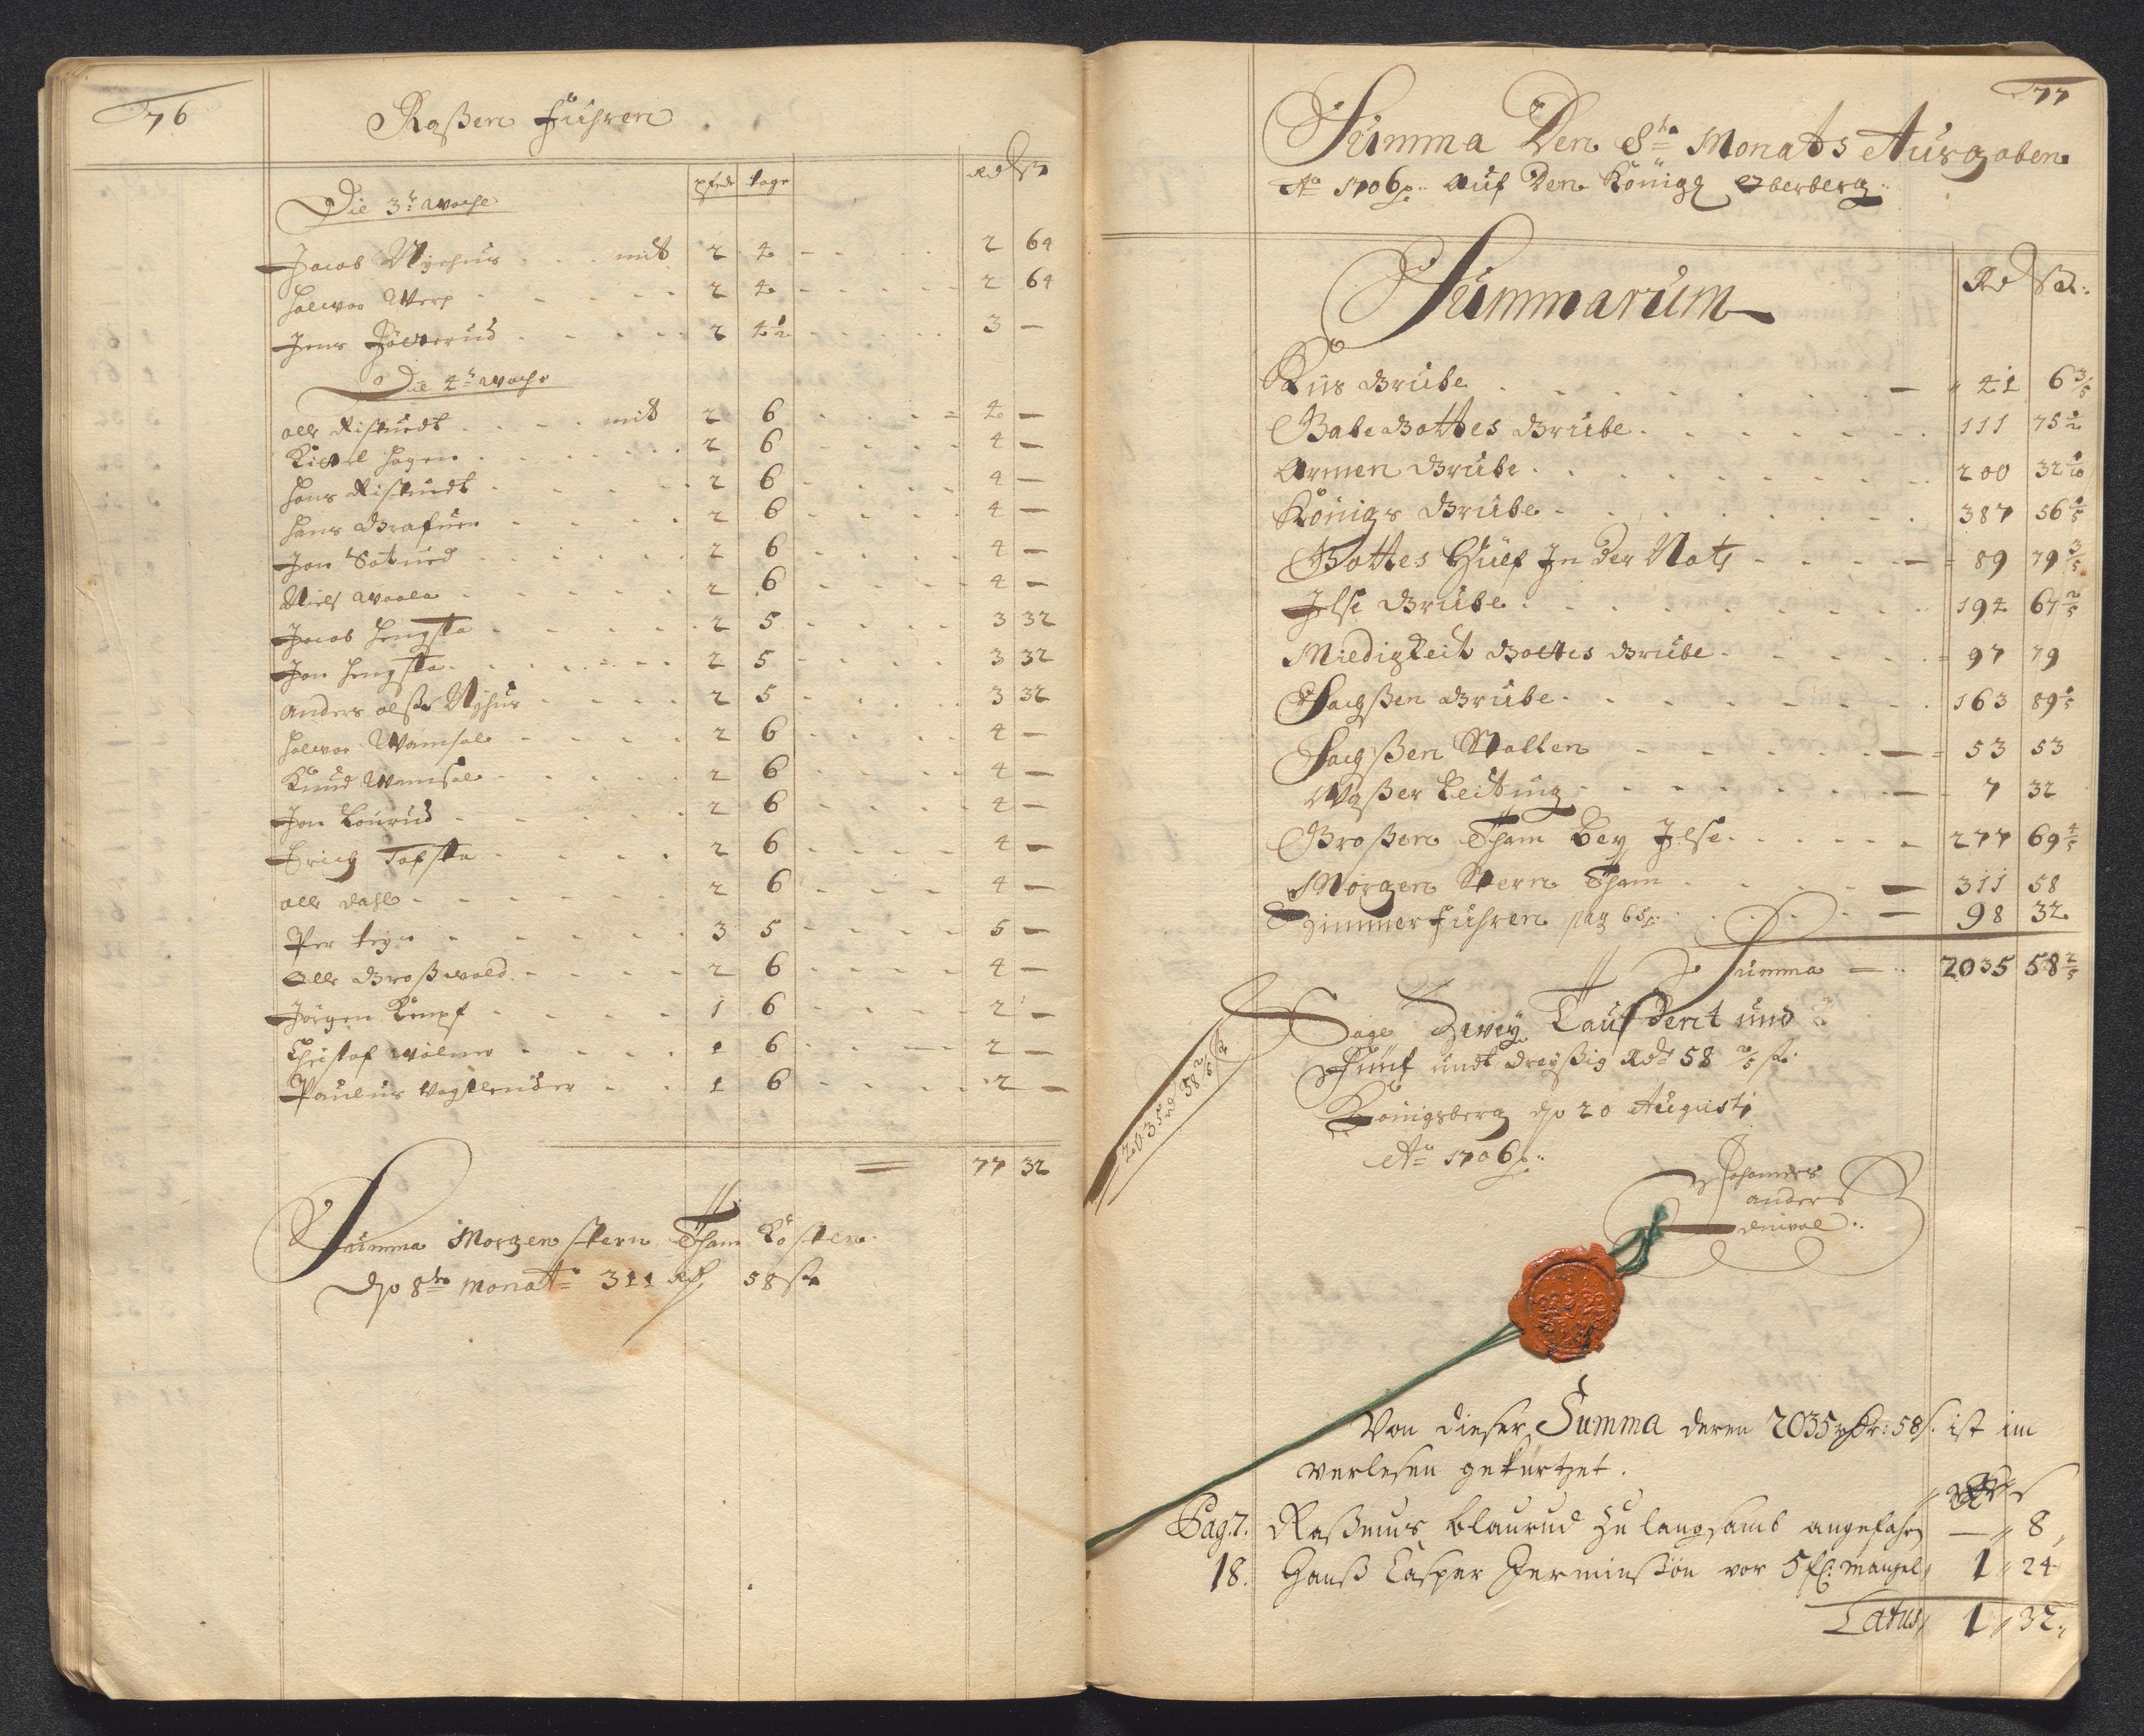 76
Raßen Führen
pferde tage Rd ß
Die 3te Woche
Jacob Nyehus . . . mit 2 4 - - - 2 64
Halvor Werp 2 4 - - - 2 64
Jens 2 4½ - - - 3 —
Die 4te Woche
olle Riskuedt . . . mit 2 6 - - - 4 —
Kittel Hagen 2 6 - - - 4 —
Hans Riskuedt 2 6 - - - 4 —
Hans Grafuer 2 6 - - - 4 —
Jon Soterud 2 6 - - - 4 —
Niels Waale 2 6 - - - 4 —
Jacob Hengsta 2 5 - - - 3 32
Jon Hengsta 2 5 - - - 3 32
Anders olß Nyhus 2 5 - - - 3 32
Halvor Wamsal 2 6 - - - 4 —
Knud Wamsal 2 6 - - - 4 —
Jon Lourud 2 6 - - - 4 —
Erich Tofsta 2 6 - - - 4 —
olle Dahl 2 6 - - - 4 —
Per tegn 3 5 - - - 5 —
Olle Großwald 2 6 - - - 4 —
Jörgen Kempf 1 6 - - - 2 —
Christof 1 6 - - - 2 —
Paulus Vogtlender 1 6 - - - 2 —
= 77 32
Summa Morgenstern Tham Kosten
dp 8te Monat 311 Rd 58 ß
77
Summa Den 8te Monats Ausgaben
Ao 1706 p. auf Den Königl Oberberg
Summarum Rd ß
Kiis Grube 41 6 3/5
Gabe Gottes Grube 111 75 ½
Armen Grube 200 32 1/10
Königs Grube 387 56 1/5
Gottes Hülf In der Noth 89 79 3/5
Ilse Grube 194 67 2/5
Mildigkeit Gottes Grube 97 79
Sachßen Grube 163 89 1/5
Sachßen Stollen 53 53
Waßer Leitung 7 32
Großen Tham Bey Ilse 277 69 4/5
Morgen Stern Tham 311 58
Zimmer Führen pag 65 98 32
Summa 2035 58 2/5
Sage Zwey Tausendt und
Fünf undt dreyßig Rdr 58 2/5 ß
2035 rd 58 2/5 ß
Königsberg dp 20 Augusti
Ao 1706 p.
Johannes
anders
Von dieser Summa deren 2035 rdr: 58 ß. ist im
verlesen gekürtzet.
Pag. 7. Raßmus Blaurud zu langsamb angefahr — 8
18. Hanß Casper Jerminßön vor 5 ß: mangel 1 24
Latus 1 32